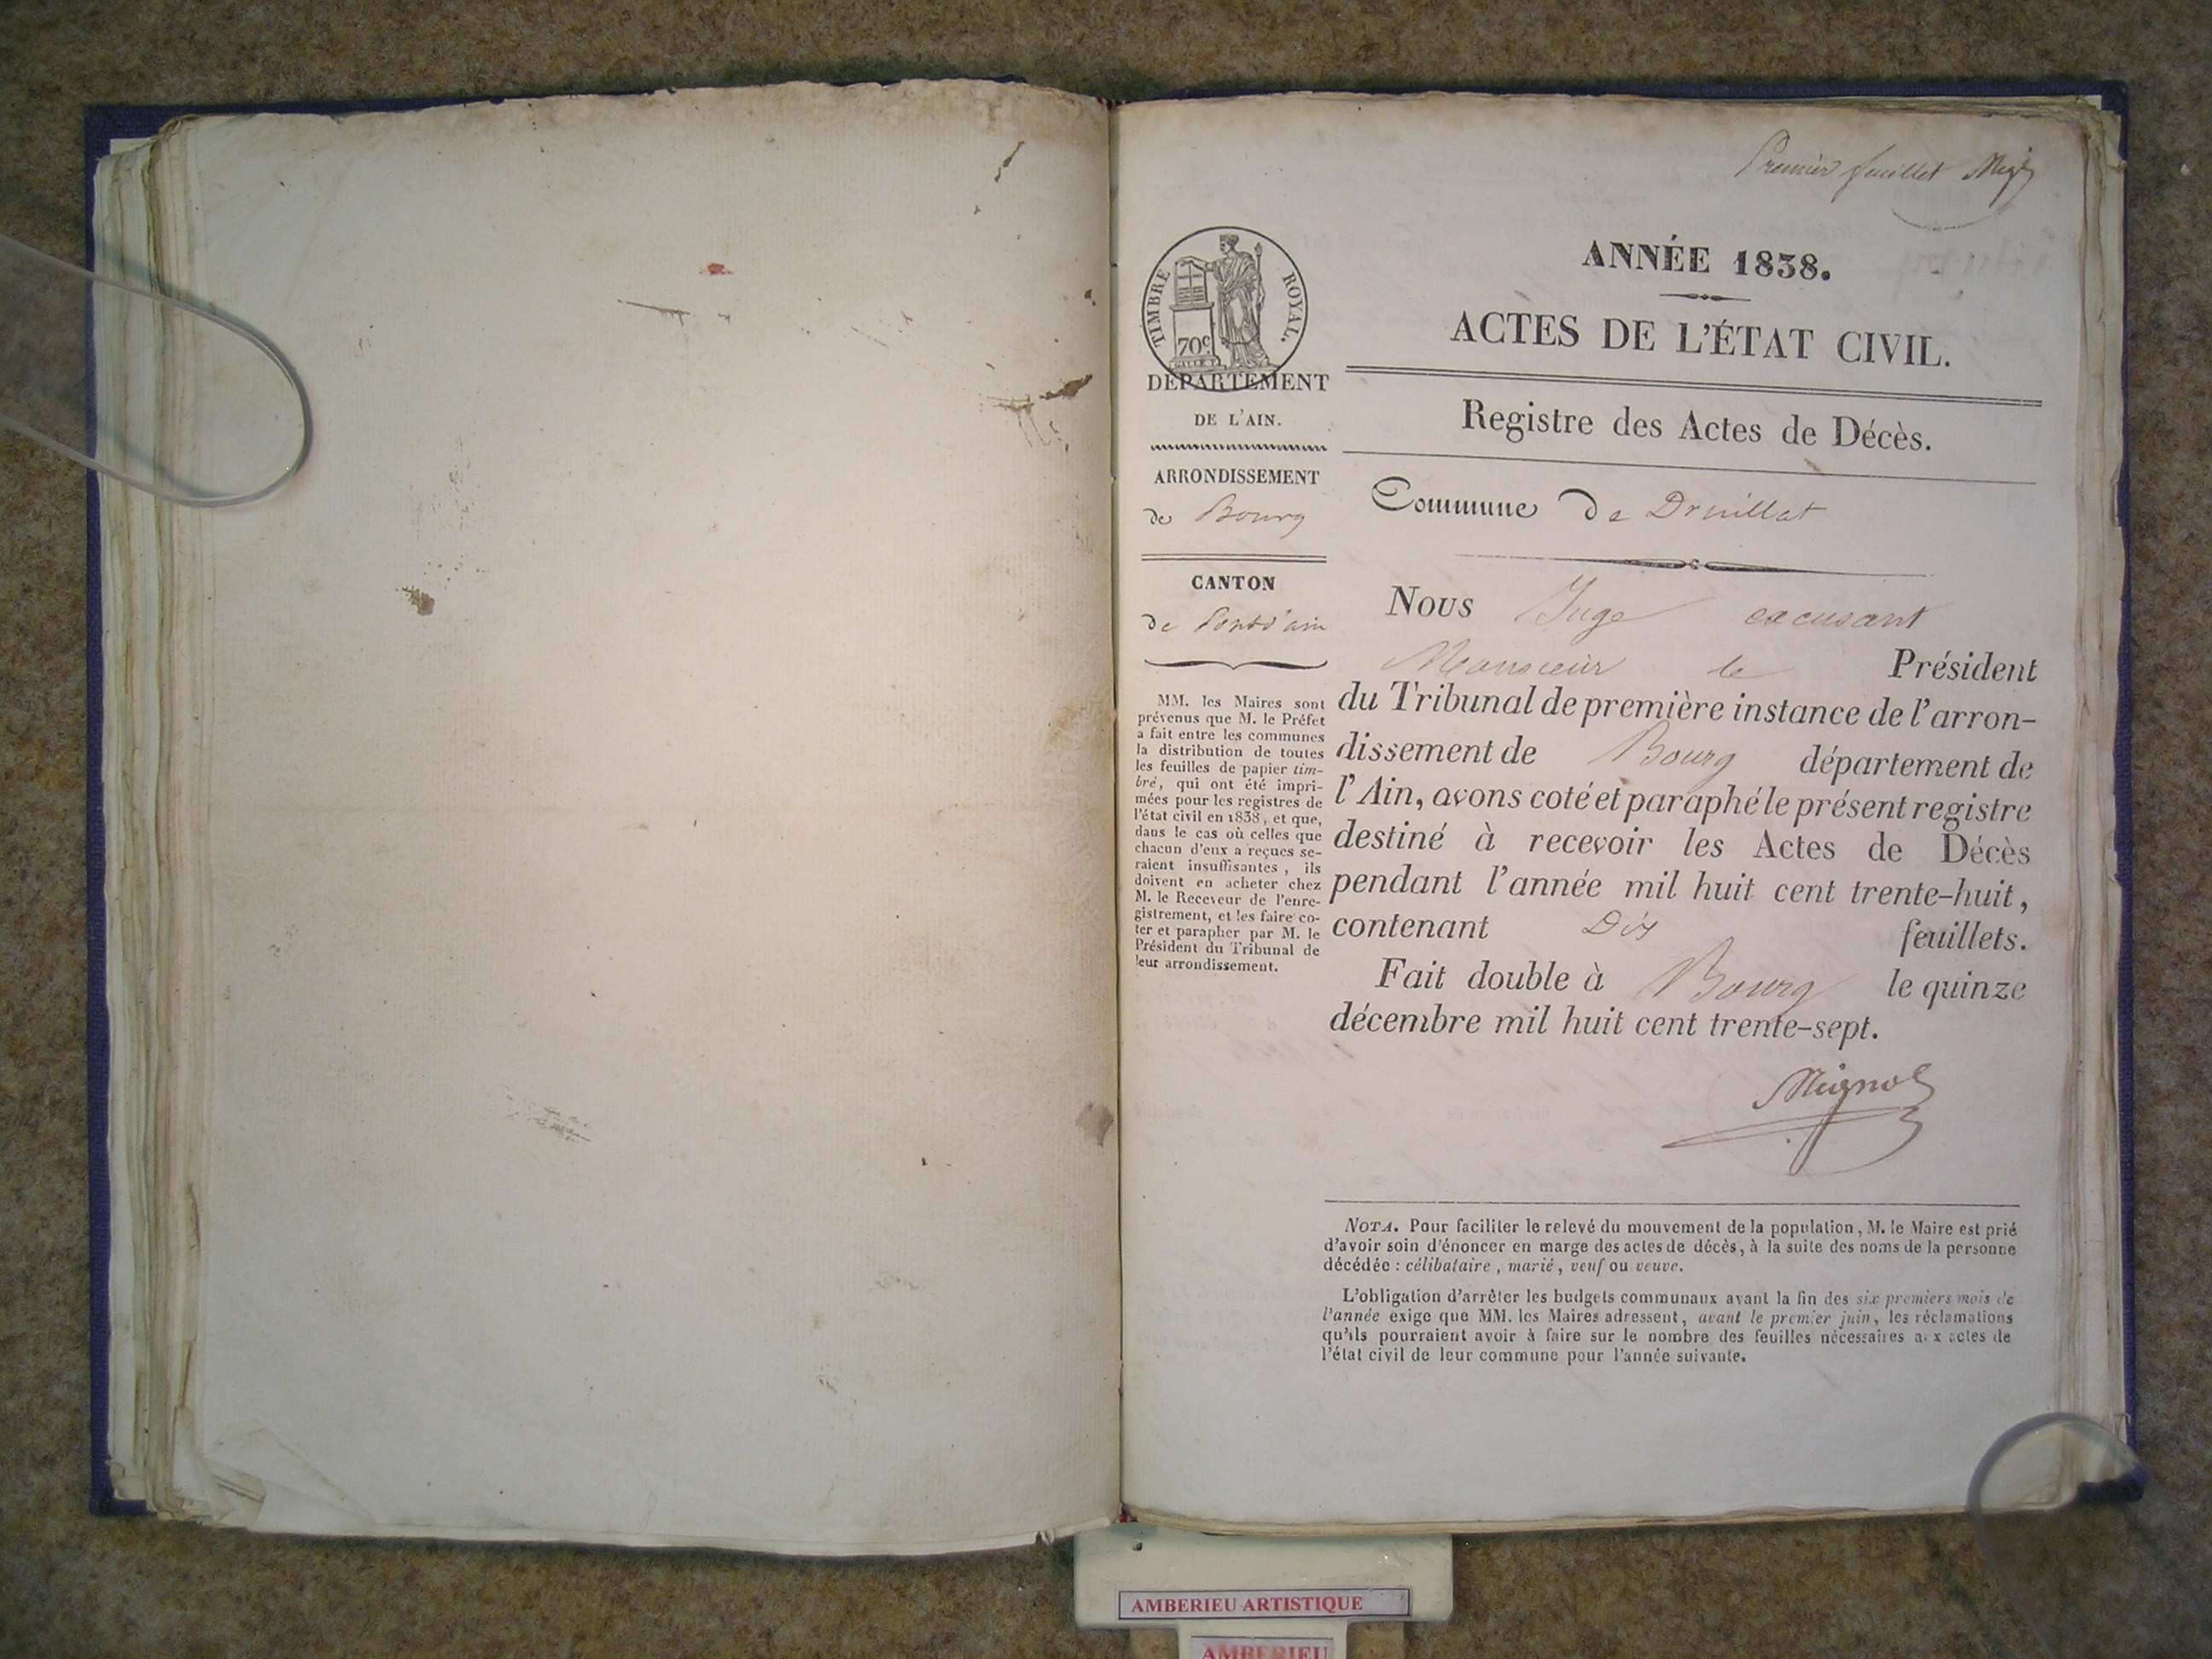 Premier feuillet
ANNÉE 1838.
ACTES DE L'ÉTAT CIVIL.
Registre des Actes de Décès.
TIMBRE ROYAL.
70c
DÉPARTEMENT
DE L'AIN.
ARRONDISSEMENT
de Bourg
CANTON
de Pont d'ain
MM. les Maires sont
prévenus que M. le Préfet
a fait entre les communes
la distribution de toutes
les feuilles de papier tim-
bré, qui ont été impri-
mées pour les registres de
l'état civil en 1838, et que,
dans le cas où celles que
chacun d'eux a reçues se-
raient insuffisantes, ils
doivent en acheter chez
M. le Receveur de l'enre-
gistrement, et les faire co-
ter et parapher par M. le
Président du Tribunal de
leur arrondissement.
Commune de Druillat
Nous Juge excusant
Monsieur le Président
du Tribunal de première instance de l'arron-
dissement de Bourg département de
l'Ain, avons coté et paraphé le présent registre
destiné à recevoir les Actes de Décès
pendant l'année mil huit cent trente-huit,
contenant Dix feuillets.
Fait double à Bourg le quinze
décembre mil huit cent trente-sept.
NOTA. Pour faciliter le relevé du mouvement de la population, M. le Maire est prié
d'avoir soin d'énoncer en marge des actes de décès, à la suite des noms de la personne
décédée : célibataire, marié, veuf ou veuve.
L'obligation d'arrêter les budgets communaux avant la fin des six premiers mois de
l'année exige que MM. les Maires adressent, avant le premier juin, les réclamations
qu'ils pourraient avoir à faire sur le nombre des feuilles nécessaires aux actes de
l'état civil de leur commune pour l'année suivante.
AMBERIEU ARTISTIQUE
AMBERIEU